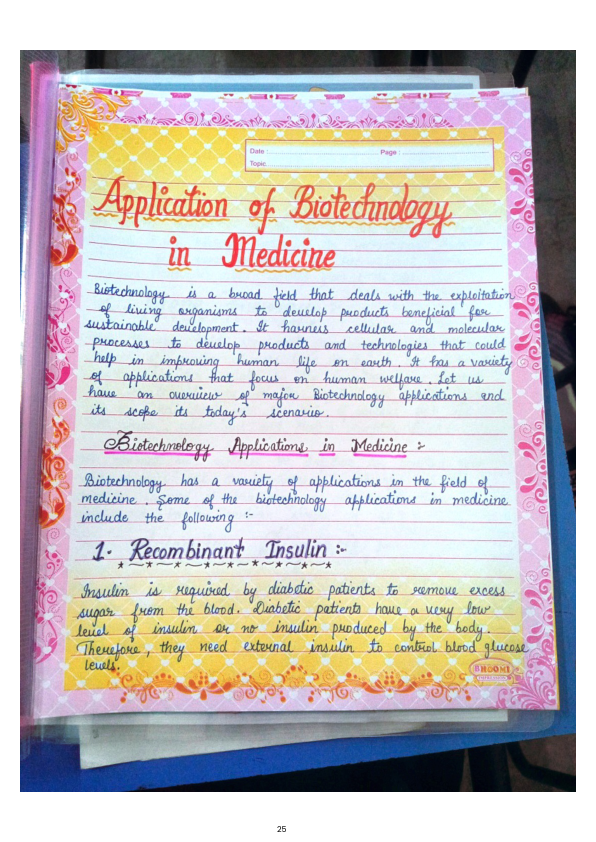 Date :
Page :
Topic
Application of Biotechnology
in Medicine
Biotechnology is a broad field that deals with the exploitation
of living organisms to develop products beneficial for
sustainable development. It harness cellular and molecular
processes to develop products and technologies that could
help in improving human life on earth. It has a variety
of applications that focus on human welfare. Let us
have an overview of major Biotechnology applications and
its scope its today's scenario.
Biotechnology Applications in Medicine :-
Biotechnology has a variety of applications in the field of
medicine. Some of the biotechnology applications in medicine
include the following :-
1. Recombinant Insulin :-
Insulin is required by diabetic patients to remove excess
sugar from the blood. Diabetic patients have a very low
level of insulin or no insulin produced by the body.
Therefore, they need external insulin to control blood glucose
levels.
BHOOMI
25